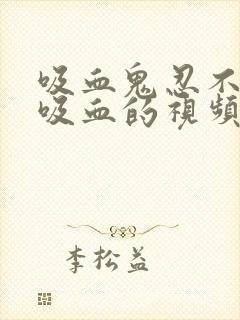 吸血鬼忍不
吸血的視頻
李松益